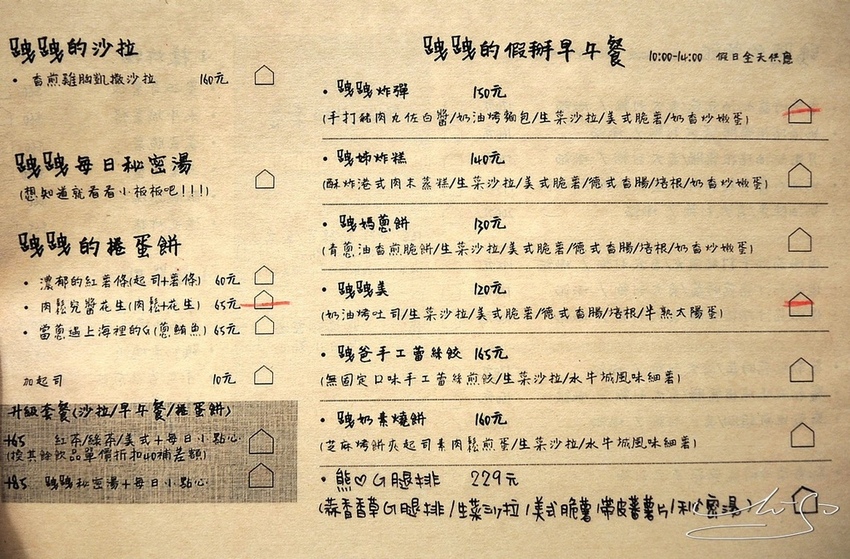 跩跩的沙拉
• 香煎雞胸凱撒沙拉 160元
跩跩每日秘密湯
(想知道就看看小板板吧!!!)
跩跩的捲蛋餅
• 濃郁的紅薯條(起司+薯條) 60元
• 肉鬆兒醬花生(肉鬆+花生) 65元
• 當蔥遇上海裡的G(蔥鮪魚) 65元
加起司 10元
升級套餐(沙拉/早午餐/捲蛋餅)
+65 紅茶/綠茶/美式+每日小點心
(換其餘飲品單價折扣40補差額)
+85 跩跩秘密湯+每日小點心
跩跩的假掰早午餐 10:00-14:00 假日全天供應
• 跩跩炸彈 150元
(手打豬肉丸佐白醬/奶油烤麵包/生菜沙拉/美式脆薯/奶香炒嫩蛋)
• 跩姊炸糕 140元
(酥炸港式肉末蒸糕/生菜沙拉/美式脆薯/德式香腸/培根/奶香炒嫩蛋)
• 跩媽蔥餅 130元
(青蔥油香煎脆餅/生菜沙拉/美式脆薯/德式香腸/培根/奶香炒嫩蛋)
• 跩跩美 120元
(奶油烤吐司/生菜沙拉/美式脆薯/德式香腸/培根/半熟太陽蛋)
• 跩爸手工蕾絲餃 165元
(無固定口味手工蕾絲煎餃/生菜沙拉/水牛城風味細薯)
• 跩奶素燒餅 160元
(芝麻烤餅夾起司素肉鬆煎蛋/生菜沙拉/水牛城風味細薯)
• 熊♡G腿排 229元
(蒜香香草G腿排/生菜沙拉/美式脆薯/帶皮蕃薯片/秘密湯)